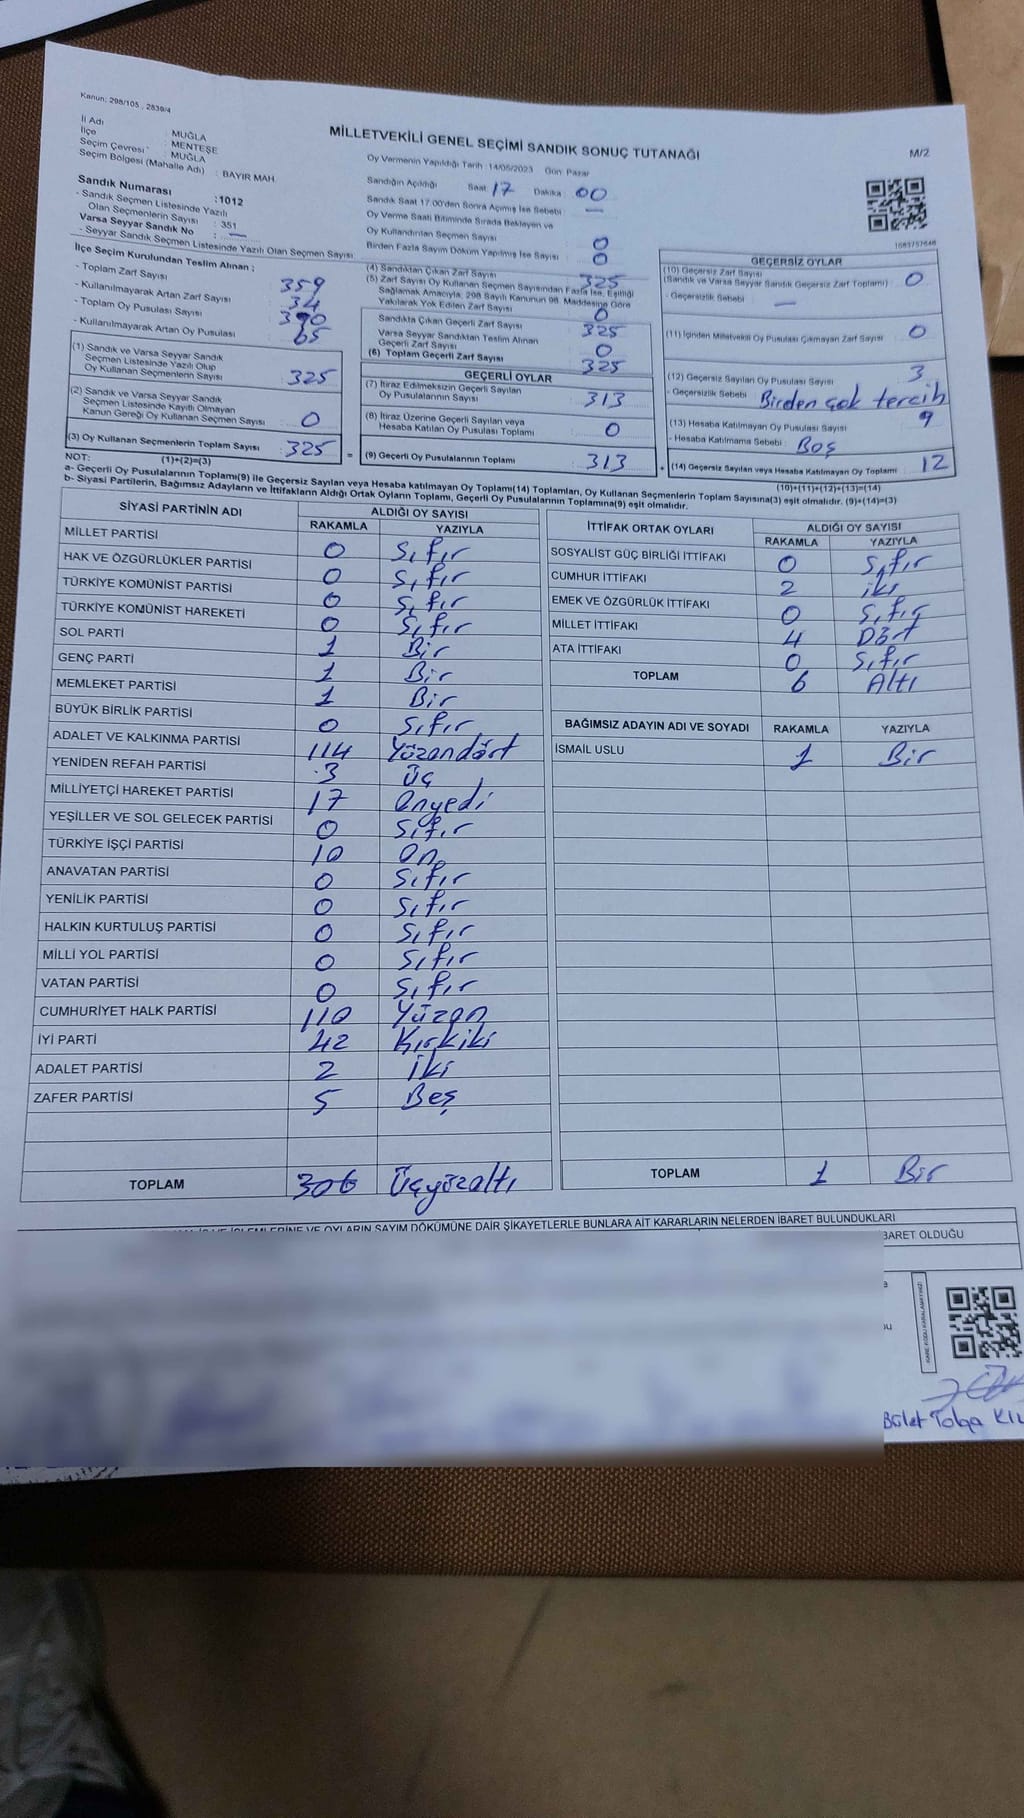 Kanun: 298/105 , 2839/4
MİLLETVEKİLİ GENEL SEÇİMİ SANDIK SONUÇ TUTANAĞI
M/2
İl Adı : MUĞLA
İlçe : MENTEŞE
Seçim Çevresi : MUĞLA
Seçim Bölgesi (Mahalle Adı) : BAYIR MAH.
Sandık Numarası : 1012
- Sandık Seçmen Listesinde Yazılı
Olan Seçmenlerin Sayısı : 351
Varsa Seyyar Sandık No : —
- Seyyar Sandık Seçmen Listesinde Yazılı Olan Seçmen Sayısı
Oy Vermenin Yapıldığı Tarih : 14/05/2023 Gün: Pazar
Sandığın Açıldığı Saat: 17 Dakika: 00
Sandık Saat 17.00'den Sonra Açımış İse Sebebi —
Oy Verme Saati Bitiminde Sırada Bekleyen ve
Oy Kullandırılan Seçmen Sayısı 0
Birden Fazla Sayım Döküm Yapılmış İse Sayısı 0
1683757648
İlçe Seçim Kurulundan Teslim Alınan ;
- Toplam Zarf Sayısı 359
- Kullanılmayarak Artan Zarf Sayısı 34
- Toplam Oy Pusulası Sayısı 390
- Kullanılmayarak Artan Oy Pusulası 65
(1) Sandık ve Varsa Seyyar Sandık
Seçmen Listesinde Yazılı Olup
Oy Kullanan Seçmenlerin Sayısı : 325
(2) Sandık ve Varsa Seyyar Sandık
Seçmen Listesinde Kayıtlı Olmayan
Kanun Gereği Oy Kullanan Seçmen Sayısı : 0
(3) Oy Kullanan Seçmenlerin Toplam Sayısı : 325
(4) Sandıktan Çıkan Zarf Sayısı 325
(5) Zarf Sayısı Oy Kullanan Seçmen Sayısından Fazla İse, Eşitliği
Sağlamak Amacıyla, 298 Sayılı Kanunun 98. Maddesine Göre
Yakılarak Yok Edilen Zarf Sayısı 0
Sandıkta Çıkan Geçerli Zarf Sayısı : 325
Varsa Seyyar Sandıktan Teslim Alınan
Geçerli Zarf Sayısı : 0
(6) Toplam Geçerli Zarf Sayısı : 325
GEÇERLİ OYLAR
(7) İtiraz Edilmeksizin Geçerli Sayılan
Oy Pusulalarının Sayısı : 313
(8) İtiraz Üzerine Geçerli Sayılan veya
Hesaba Katılan Oy Pusulası Toplamı : 0
= (9) Geçerli Oy Pusulalarının Toplamı : 313
GEÇERSİZ OYLAR
(10) Geçersiz Zarf Sayısı
(Sandık ve Varsa Seyyar Sandık Geçersiz Zarf Toplamı) : 0
- Geçersizlik Sebebi : —
(11) İçinden Milletvekili Oy Pusulası Çıkmayan Zarf Sayısı : 0
(12) Geçersiz Sayılan Oy Pusulası Sayısı : 3
- Geçersizlik Sebebi : Birden çok tercih
(13) Hesaba Katılmayan Oy Pusulası Sayısı : 9
- Hesaba Katılmama Sebebi : Boş
+ (14) Geçersiz Sayılan veya Hesaba Katılmayan Oy Toplamı : 12
NOT: (1)+(2)=(3)
(10)+(11)+(12)+(13)=(14)
a- Geçerli Oy Pusulalarının Toplamı(9) ile Geçersiz Sayılan veya Hesaba katılmayan Oy Toplamı(14) Toplamları, Oy Kullanan Seçmenlerin Toplam Sayısına(3) eşit olmalıdır. (9)+(14)=(3)
b- Siyasi Partilerin, Bağımsız Adayların ve İttifakların Aldığı Ortak Oyların Toplamı, Geçerli Oy Pusulalarının Toplamına(9) eşit olmalıdır.
SİYASİ PARTİNİN ADI ALDIĞI OY SAYISI
RAKAMLA YAZIYLA
MİLLET PARTİSİ 0 Sıfır
HAK VE ÖZGÜRLÜKLER PARTİSİ 0 Sıfır
TÜRKİYE KOMÜNİST PARTİSİ 0 Sıfır
TÜRKİYE KOMÜNİST HAREKETİ 0 Sıfır
SOL PARTİ 1 Bir
GENÇ PARTİ 1 Bir
MEMLEKET PARTİSİ 1 Bir
BÜYÜK BİRLİK PARTİSİ 0 Sıfır
ADALET VE KALKINMA PARTİSİ 114 Yüzondört
YENİDEN REFAH PARTİSİ 3 Üç
MİLLİYETÇİ HAREKET PARTİSİ 17 Onyedi
YEŞİLLER VE SOL GELECEK PARTİSİ 0 Sıfır
TÜRKİYE İŞÇİ PARTİSİ 10 On
ANAVATAN PARTİSİ 0 Sıfır
YENİLİK PARTİSİ 0 Sıfır
HALKIN KURTULUŞ PARTİSİ 0 Sıfır
MİLLİ YOL PARTİSİ 0 Sıfır
VATAN PARTİSİ 0 Sıfır
CUMHURİYET HALK PARTİSİ 110 Yüzon
İYİ PARTİ 42 Kırkiki
ADALET PARTİSİ 2 İki
ZAFER PARTİSİ 5 Beş
TOPLAM 306 Üçyüzaltı
İTTİFAK ORTAK OYLARI ALDIĞI OY SAYISI
RAKAMLA YAZIYLA
SOSYALİST GÜÇ BİRLİĞİ İTTİFAKI 0 Sıfır
CUMHUR İTTİFAKI 2 iki
EMEK VE ÖZGÜRLÜK İTTİFAKI 0 Sıfır
MİLLET İTTİFAKI 4 Dört
ATA İTTİFAKI 0 Sıfır
TOPLAM 6 Altı
BAĞIMSIZ ADAYIN ADI VE SOYADI RAKAMLA YAZIYLA
İSMAİL USLU 1 Bir
TOPLAM 1 Bir
İŞLEMLERİNE VE OYLARIN SAYIM DÖKÜMÜNE DAİR ŞİKAYETLERLE BUNLARA AİT KARARLARIN NELERDEN İBARET BULUNDUKLARI
BARET OLDUĞU
KARE KODU KARALAMAYINIZ!
Tolga